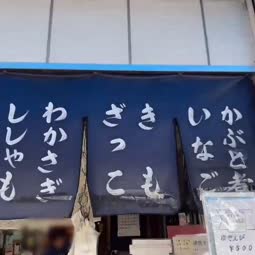 かぶと煮
いなご
きも
ざっこ
わかさぎ
ししゃも
¥500